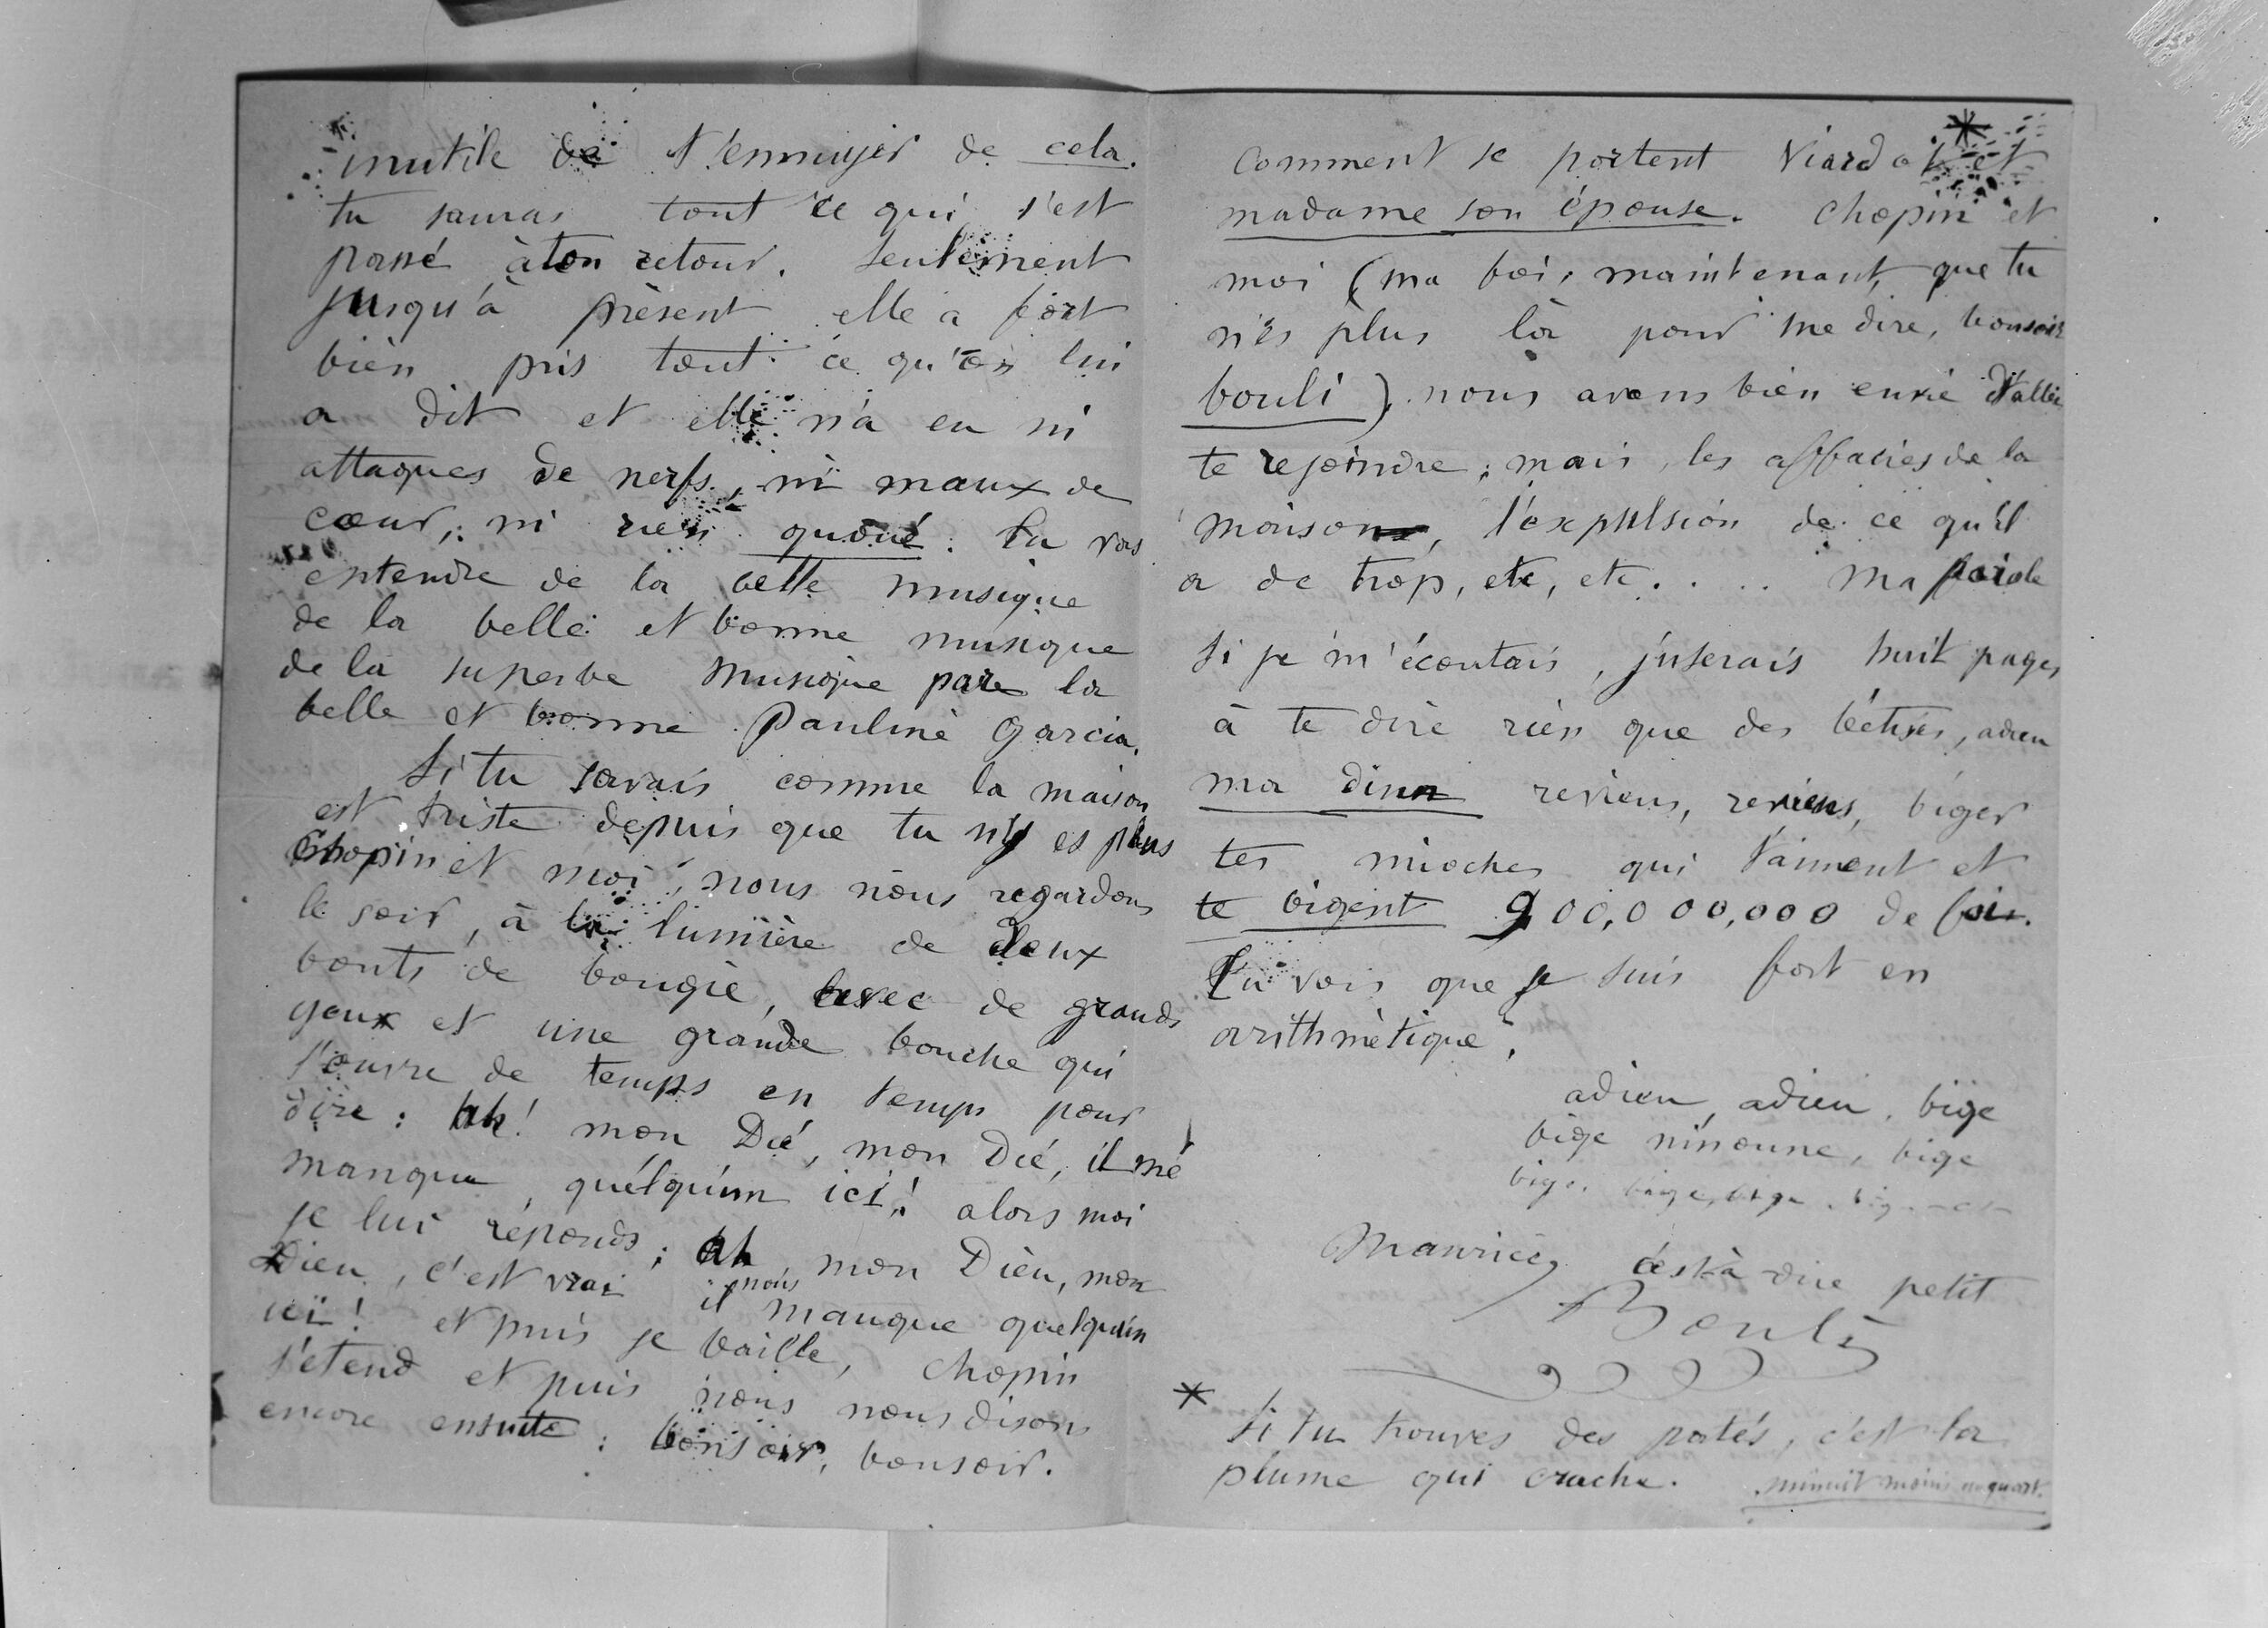 inutile de t'ennuyer de cela.
tu sauras tout ce qui s'est
passé à ton retour. seulement
jusqu'à présent elle a fort
bien pris tout ce qu'on lui
a dit et elle n'a eu ni
attaques de nerfs, ni maux de
cœur, ni rien quoué. tu vas
entendre de la belle musique
de la belle et bonne musique
de la superbe musique par la
belle et bonne Pauline Garcia.
Si tu savais comme la maison
est triste depuis que tu n'y es plus
Chopin et moi, nous nous regardons
le soir, à la lumière de deux
bouts de bougie, avec de grands
yeux et une grande bouche qui
s'ouvre de temps en temps pour
dire : ah! mon Dié, mon Dié, il mé
manque quélqu'un ici! alors moi
je lui réponds ; ah mon Dieu, mon
Dieu, c'est vrai il nous manque quelqu'un
ici! et puis je baille, Chopin
s'étend et puis nous nous disons
encore ensuite : bonsoir, bonsoir.
comment se portent Viardot et *
madame son épouse. Chopin et
moi (ma foi, maintenant que tu
n'es plus là pour me dire, bonsoir
bouli) nous avons bien envie d'aller
te rejoindre, mais les affaires de la
maison, l'expulsion de ce qu'il
a de trop, etc, etc. . . . ma parole
si je m'écoutais, j'userais huit pages
à te dire rien que des bêtises, adieu
ma reviens, reviens, biger
tes mioches qui t'aiment et
te bigent 900,000,000 de fois.
Tu vois que je suis fort en
arithmétique.
adieu, adieu, bige
bige ninoune, bige
bige. bige, bige
Maurice, c'est à dire petit
Bouli
* Si tu trouves des patés, c'est la
plume qui crache. minuit moins un quart.